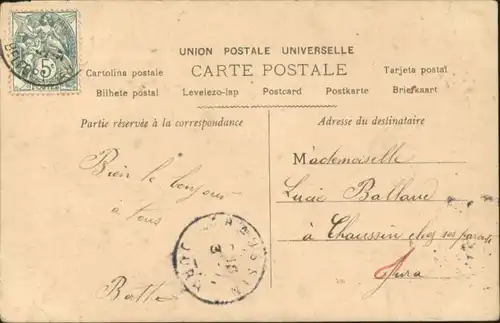 UNION POSTALE UNIVERSELLE
CARTE POSTALE
Cartolina postale
Tarjeta postal
Bilhete postal Levelezo-lap Postcard Postkarte Briefkaart
Partie réservée à la correspondance
Adresse du destinataire
Bien le bonjour
à tous
Berthe
Mademoiselle
Lucie Balland
à Chaussin chez ses parents
Jura
5c
CHAUSSIN
JURA